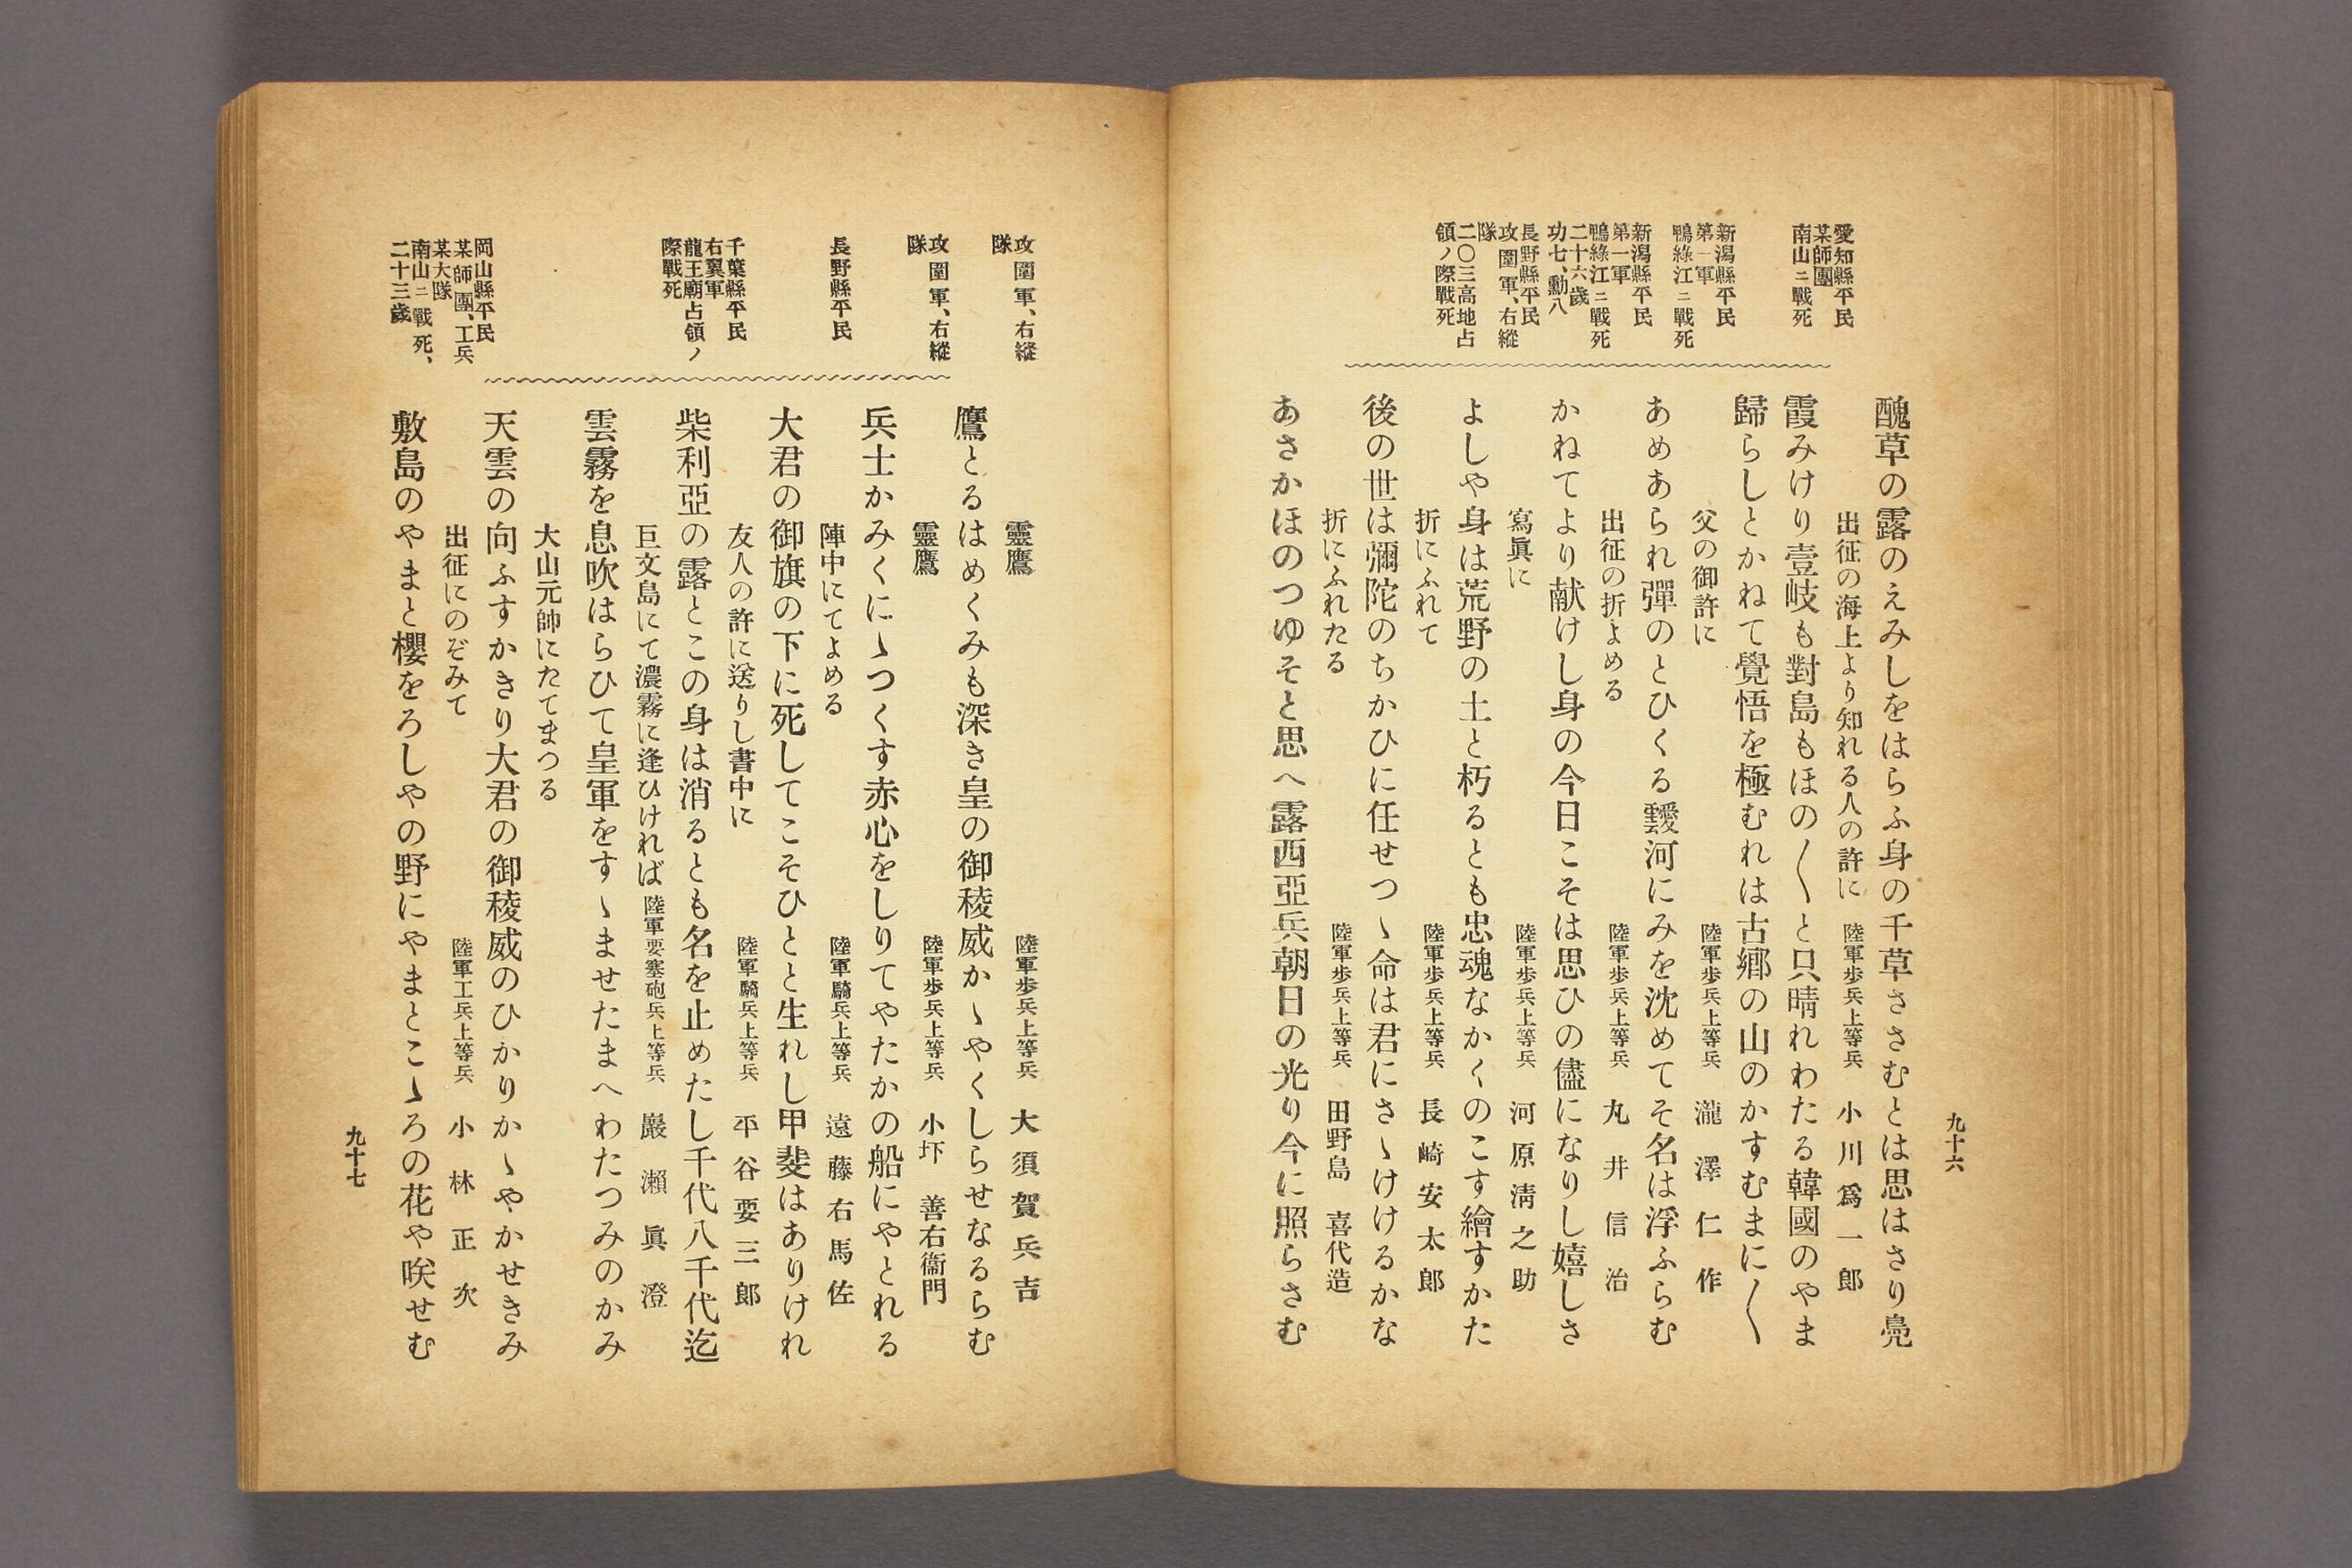 九十六
愛知縣平民
某師團
南山ニ戰死
新潟縣平民
第一軍
鴨綠江ニ戰死
新潟縣平民
第一軍
鴨綠江ニ戰死
二十六歲
功七、勳八
長野縣平民
攻圍軍、右縱
隊
二〇三高地占
領ノ際戰死
醜草の露のえみしをはらふ身の千草さゝむとは思はさり鳧
出征の海上より知れる人の許に 陸軍步兵上等兵 小川爲一郎
霞みけり壹岐も對島もほの〱と只晴れわたる韓國のやま
歸らしとかねて覺悟を極むれは古鄕の山のかすむまに〱
父の御許に 陸軍步兵上等兵 瀧澤仁作
あめあられ彈のとひくる靉河にみを沈めてそ名は浮ふらむ
出征の折よめる 陸軍步兵上等兵 丸井信治
かねてより献けし身の今日こそは思ひの儘になりし嬉しさ
寫眞に 陸軍步兵上等兵 河原淸之助
よしや身は荒野の土と朽るとも忠魂なかくのこす繪すかた
折にふれて 陸軍步兵上等兵 長崎安太郎
後の世は彌陀のちかひに任せつゝ命は君にさゝけけるかな
折にふれたる 陸軍步兵上等兵 田野島喜代造
あさかほのつゆそと思へ露西亞兵朝日の光り今に照らさむ
攻圍軍、右縱
隊
攻圍軍、右縱
隊
長野縣平民
千葉縣平民
右翼軍
龍王廟占領ノ
際戰死
岡山縣平民
某師團、工兵
某大隊
南山ニ戰死、
二十三歲
靈鷹 陸軍步兵上等兵 大須賀兵吉
鷹とるはめくみも深き皇の御稜威かゝやくしらせなるらむ
靈鷹 陸軍步兵上等兵 小圷善右衞門
兵士かみくにゝつくす赤心をしりてやたかの船にやとれる
陣中にてよめる 陸軍騎兵上等兵 遠藤右馬佐
大君の御旗の下に死してこそひとと生れし甲斐はありけれ
友人の許に送りし書中に 陸軍騎兵上等兵 平谷要三郎
柴利亞の露とこの身は消るとも名を止めたし千代八千代迄
巨文島にて濃霧に逢ひければ 陸軍要塞砲兵上等兵 巖瀨眞澄
雲霧を息吹はらひて皇軍をすゝませたまへわたつみのかみ
大山元帥にたてまつる
天雲の向ふすかきり大君の御稜威のひかりかゝやかせきみ
出征にのぞみて 陸軍工兵上等兵 小林正次
敷島のやまと櫻をろしやの野にやまとこゝろの花や咲せむ
九十七